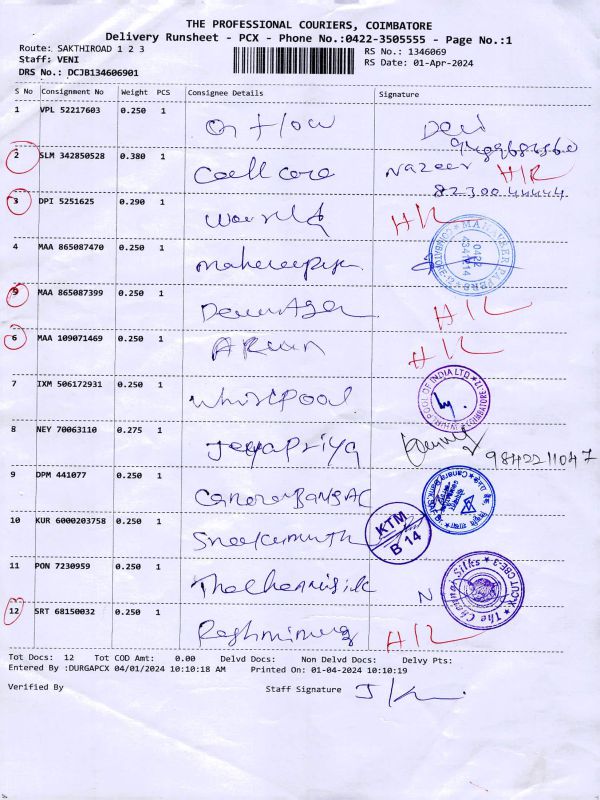 THE PROFESSIONAL COURIERS, COIMBATORE
Delivery Runsheet - PCX - Phone No.:0422-3505555 - Page No.:1
Route: SAKTHIROAD 1 2 3
RS No.: 1346069
Staff: VENI
RS Date: 01-Apr-2024
DRS No.: DCJB134606901
S No Consignment No Weight PCS Consignee Details Signature
1 VPL 52217603 0.250 1 On flow
2 SLM 342850528 0.380 1 Cell care Nazeer H/L
3 DPI 5251625 0.290 1 World H/L
4 MAA 865087470 0.250 1
MAHAVEER PAPERS
0422
COIMBATORE-12
MAA 865087399 0.250 1 H/L
6 MAA 109071469 0.250 1 Arun H/L
7 IXM 506172931 0.250 1 Whirlpool
WHIRLPOOL OF INDIA LTD
8 NEY 70063110 0.275 1 Jeyapriya 9842211047
9 DPM 441077 0.250 1
10 KUR 6000203758 0.250 1
KTM
B 14
11 PON 7230959 0.250 1 The Chennai Silk N
The Chennai Silks
CBE-3
12 SRT 68150032 0.250 1 H/L
Tot Docs: 12 Tot COD Amt: 0.00 Delvd Docs: Non Delvd Docs: Delvy Pts:
Entered By :DURGAPCX 04/01/2024 10:10:18 AM Printed On: 01-04-2024 10:10:19
Verified By Staff Signature